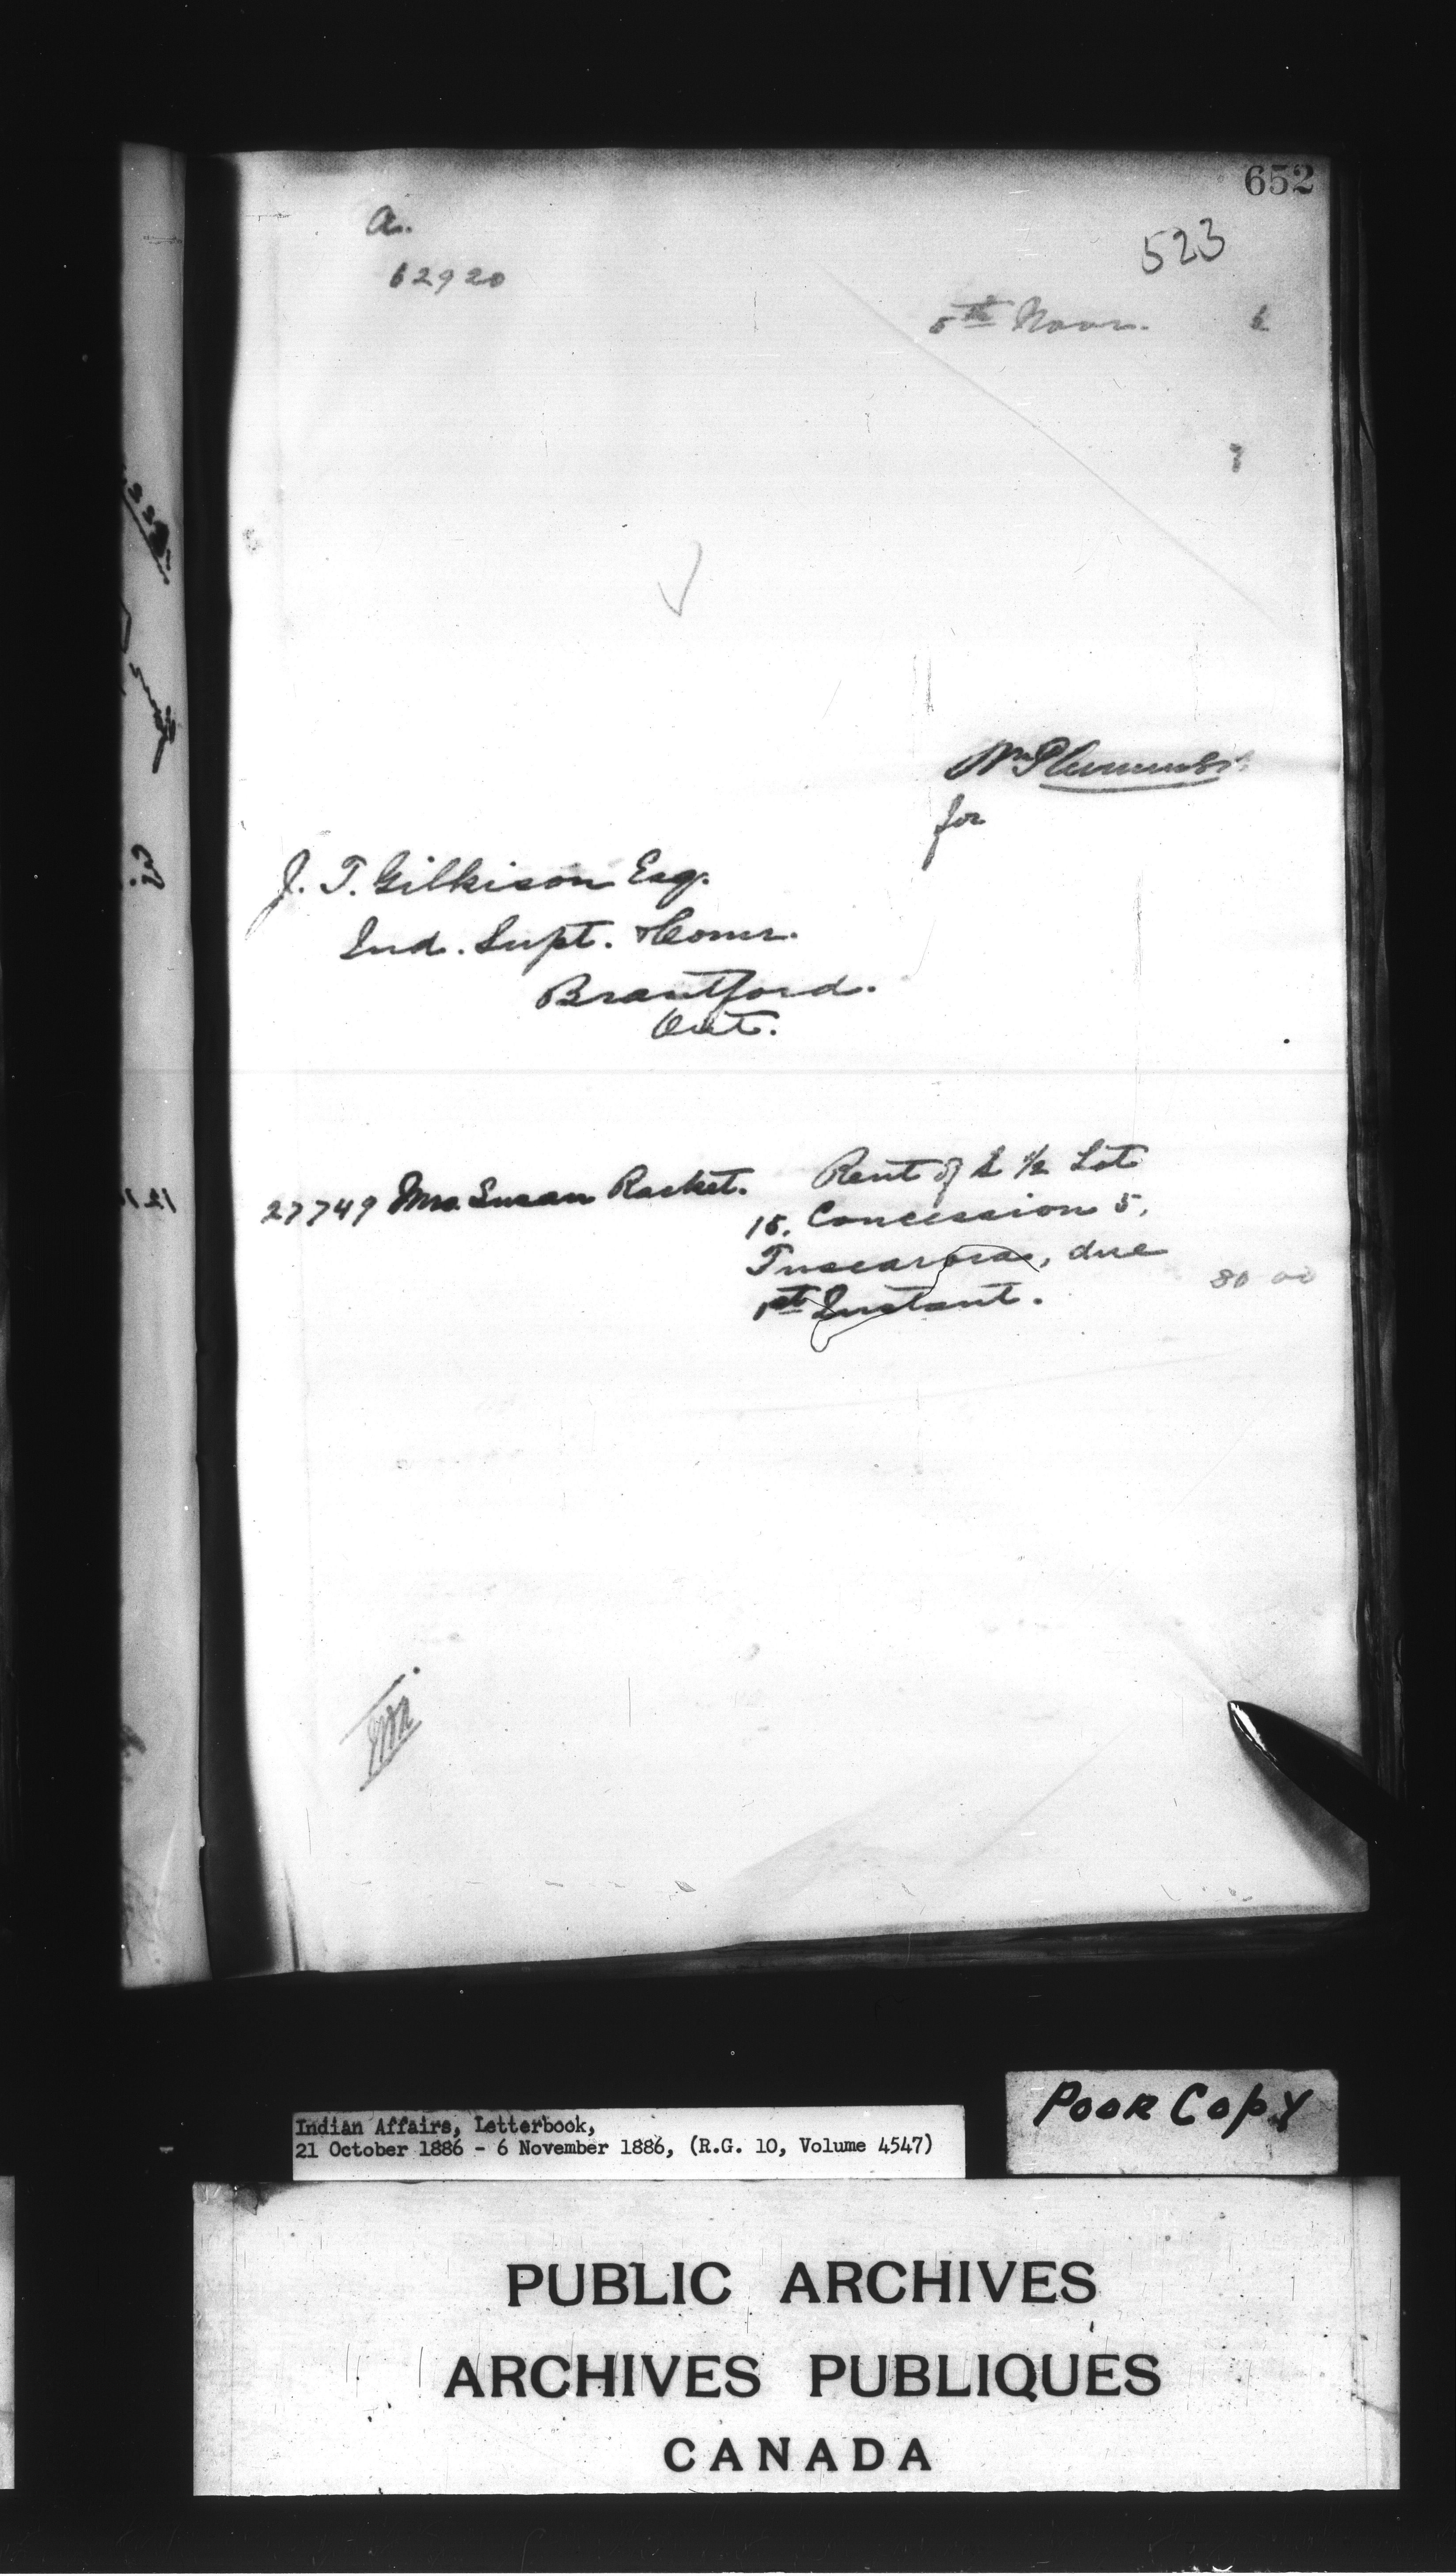 652
523
a.
62920
5th Novr. 6
J. T. Gilkison Esq.
Ind. Supt. & Comr.
Brantford.
Ont.
for
27749 Mrs. Susan Racket. Rent of S 1/2 Lot
15. Concession 5,
Tuscarora, due
1st Instant. 80 00
Indian Affairs, Letterbook,
21 October 1886 - 6 November 1886, (R.G. 10, Volume 4547)
POOR COPY
PUBLIC ARCHIVES
ARCHIVES PUBLIQUES
CANADA